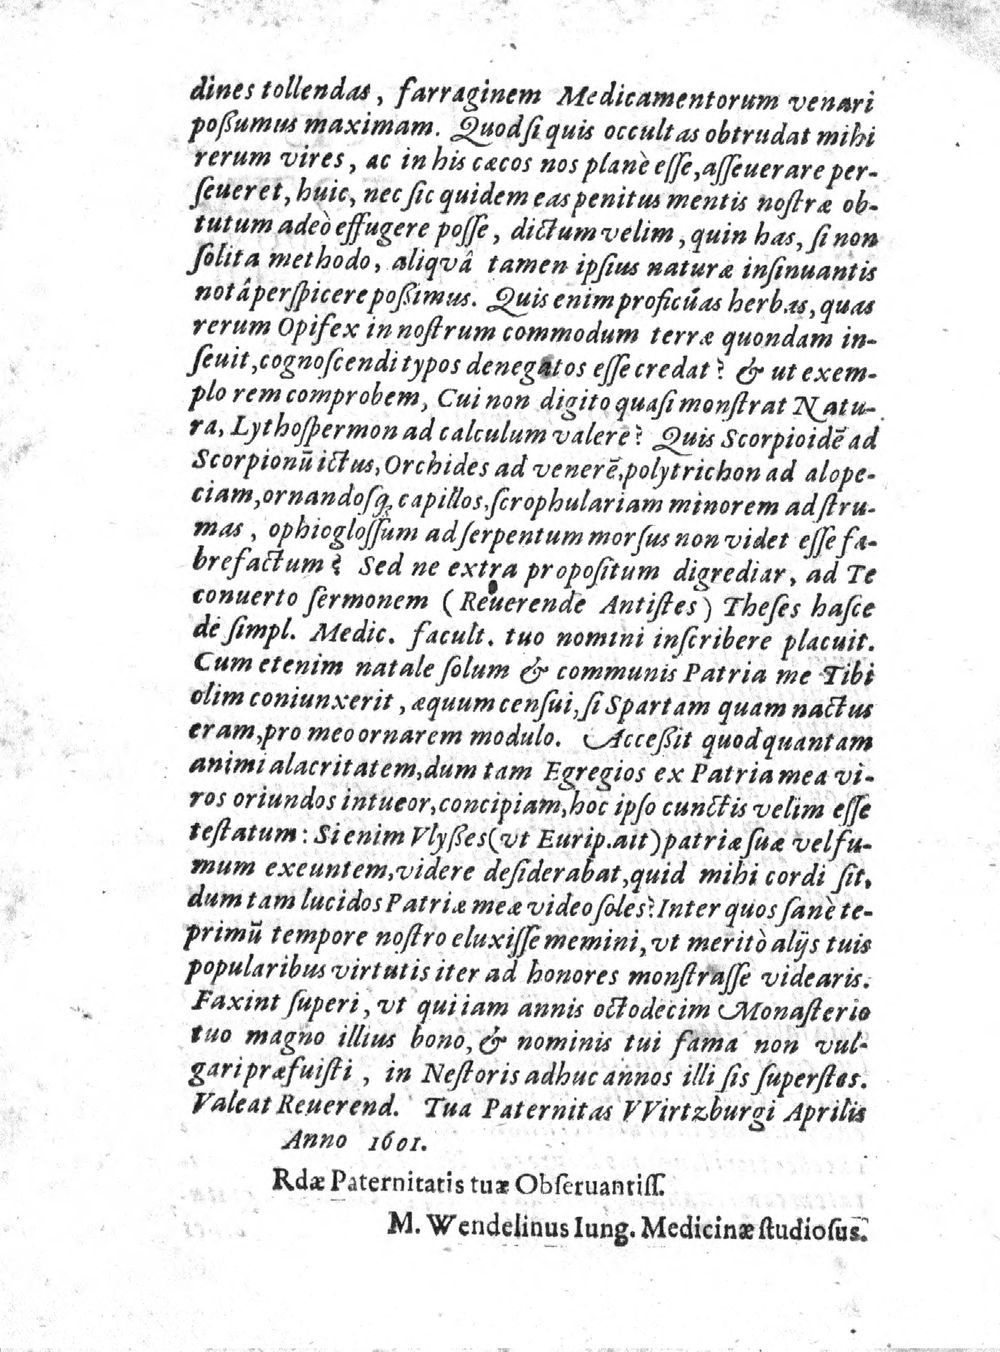 dines tollendas, farraginem Medicamentorum venari
poßumus maximam. Quodſi quis occultas obtrudat mihi
rerum vires, ac in his cæcos nos planè eſſe, aſſeuerare per-
ſeueret, huic, nec ſic quidem eas penitus mentis noſtræ ob-
tutum adeò effugere poſſe, dictum velim, quin has, ſi non
ſolita methodo, aliquâ tamen ipſius naturæ inſinuantis
notâ perſpicere poßimus. Quis enim proficúas herbas, quas
rerum Opifex in noſtrum commodum terræ quondam in-
ſeuit, cognoſcendi typos denegatos eſſe credat? & ut exem-
plo rem comprobem, Cui non digito quaſi monſtrat Natu-
ra, Lythoſpermon ad calculum valere? Quis Scorpioidẽ ad
Scorpionũ ictus, Orchides ad venerẽ, polytrichon ad alope-
ciam, ornandoſq́; capillos, ſcrophulariam minorem ad ſtru-
mas, ophiogloſſum ad ſerpentum morſus non videt eſſe fa-
brefactum? Sed ne extra propoſitum digrediar, ad Te
conuerto ſermonem (Reuerende Antiſtes) Theſes haſce
de ſimpl. Medic. facult. tuo nomini inſcribere placuit.
Cum etenim natale ſolum & communis Patria me Tibi
olim coniunxerit, æquum cenſui, ſi Spartam quam nactus
eram, pro meo ornarem modulo. Acceßit quod quantam
animi alacritatem, dum tam Egregios ex Patria mea vi-
ros oriundos intueor, concipiam, hoc ipſo cunctis velim eſſe
teſtatum: Si enim Vlyßes (vt Eurip. ait) patriæ ſuæ vel fu-
mum exeuntem, videre deſiderabat, quid mihi cordi ſit,
dum tam lucidos Patriæ meæ video ſoles? Inter quos ſanè te-
primũ tempore noſtro eluxiſſe memini, vt meritò alijs tuis
popularibus virtutis iter ad honores monſtraſſe videaris.
Faxint ſuperi, vt qui iam annis octodecim Monaſterio
tuo magno illius bono, & nominis tui fama non vul-
gari præfuiſti, in Neſtoris adhuc annos illi ſis ſuperſtes.
Valeat Reuerend. Tua Paternitas VVirtzburgi Aprilis
Anno 1601.
Rdæ Paternitatis tuæ Obſeruantiſſ.
M. Wendelinus Iung. Medicinæ ſtudioſus.